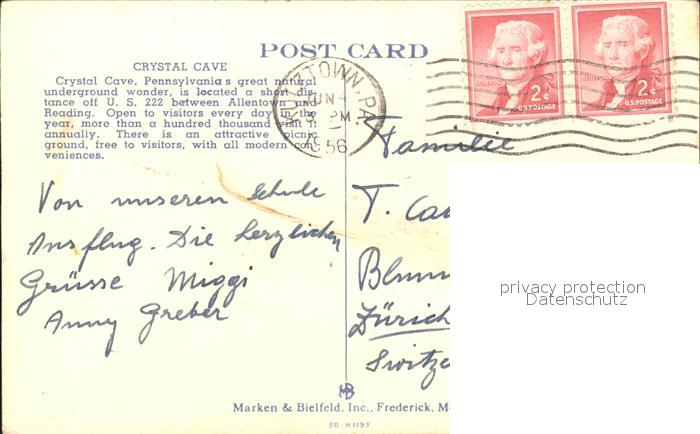 POST CARD
CRYSTAL CAVE
Crystal Cave, Pennsylvania's great natural
underground wonder, is located a short dis-
tance off U. S. 222 between Allentown and
Reading. Open to visitors every day in the
year, more than a hundred thousand visit it
annually. There is an attractive picnic
ground, free to visitors, with all modern con-
veniences.
KUTZTOWN PA.
JUN
PM
1956
2¢
U.S. POSTAGE
2¢
U.S. POSTAGE
Von unseren Schule
Ausflug. Die herzlichen
Grüsse Miggi
Anny Greber
Familie
T.
Zürich
privacy protection
Datenschutz
MB
Marken & Bielfeld, Inc., Frederick, M